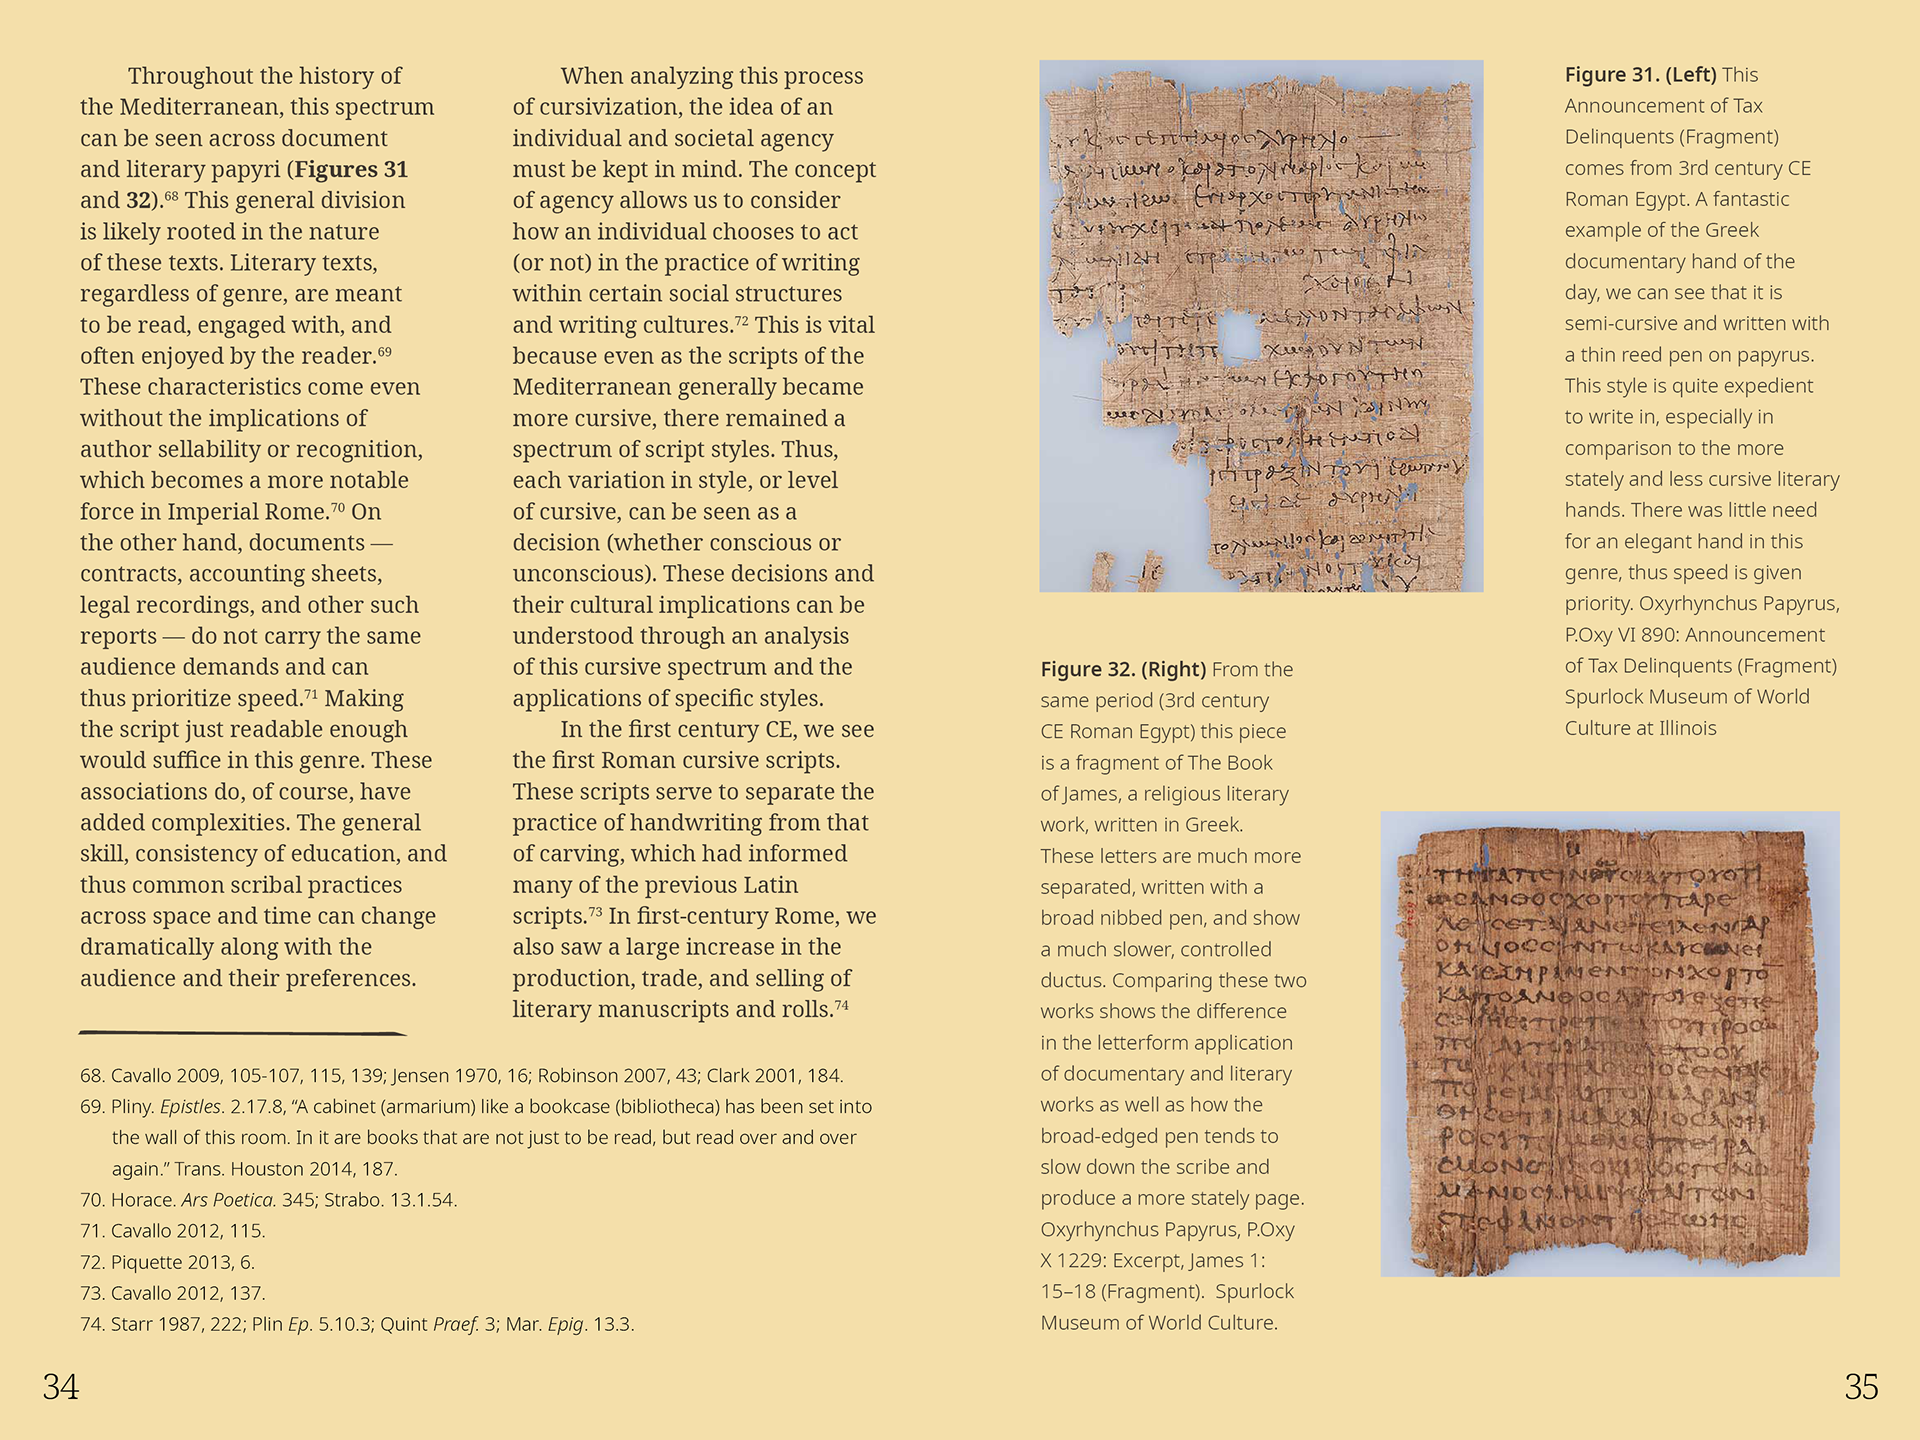 Throughout the history of
the Mediterranean, this spectrum
can be seen across document
and literary papyri (Figures 31
and 32).68 This general division
is likely rooted in the nature
of these texts. Literary texts,
regardless of genre, are meant
to be read, engaged with, and
often enjoyed by the reader.69
These characteristics come even
without the implications of
author sellability or recognition,
which becomes a more notable
force in Imperial Rome.70 On
the other hand, documents —
contracts, accounting sheets,
legal recordings, and other such
reports — do not carry the same
audience demands and can
thus prioritize speed.71 Making
the script just readable enough
would suffice in this genre. These
associations do, of course, have
added complexities. The general
skill, consistency of education, and
thus common scribal practices
across space and time can change
dramatically along with the
audience and their preferences.
When analyzing this process
of cursivization, the idea of an
individual and societal agency
must be kept in mind. The concept
of agency allows us to consider
how an individual chooses to act
(or not) in the practice of writing
within certain social structures
and writing cultures.72 This is vital
because even as the scripts of the
Mediterranean generally became
more cursive, there remained a
spectrum of script styles. Thus,
each variation in style, or level
of cursive, can be seen as a
decision (whether conscious or
unconscious). These decisions and
their cultural implications can be
understood through an analysis
of this cursive spectrum and the
applications of specific styles.
In the first century CE, we see
the first Roman cursive scripts.
These scripts serve to separate the
practice of handwriting from that
of carving, which had informed
many of the previous Latin
scripts.73 In first-century Rome, we
also saw a large increase in the
production, trade, and selling of
literary manuscripts and rolls.74
68. Cavallo 2009, 105-107, 115, 139; Jensen 1970, 16; Robinson 2007, 43; Clark 2001, 184.
69. Pliny. Epistles. 2.17.8, “A cabinet (armarium) like a bookcase (bibliotheca) has been set into
the wall of this room. In it are books that are not just to be read, but read over and over
again.” Trans. Houston 2014, 187.
70. Horace. Ars Poetica. 345; Strabo. 13.1.54.
71. Cavallo 2012, 115.
72. Piquette 2013, 6.
73. Cavallo 2012, 137.
74. Starr 1987, 222; Plin Ep. 5.10.3; Quint Praef. 3; Mar. Epig. 13.3.
34
Figure 31. (Left) This
Announcement of Tax
Delinquents (Fragment)
comes from 3rd century CE
Roman Egypt. A fantastic
example of the Greek
documentary hand of the
day, we can see that it is
semi-cursive and written with
a thin reed pen on papyrus.
This style is quite expedient
to write in, especially in
comparison to the more
stately and less cursive literary
hands. There was little need
for an elegant hand in this
genre, thus speed is given
priority. Oxyrhynchus Papyrus,
P.Oxy VI 890: Announcement
of Tax Delinquents (Fragment)
Spurlock Museum of World
Culture at Illinois
Figure 32. (Right) From the
same period (3rd century
CE Roman Egypt) this piece
is a fragment of The Book
of James, a religious literary
work, written in Greek.
These letters are much more
separated, written with a
broad nibbed pen, and show
a much slower, controlled
ductus. Comparing these two
works shows the difference
in the letterform application
of documentary and literary
works as well as how the
broad-edged pen tends to
slow down the scribe and
produce a more stately page.
Oxyrhynchus Papyrus, P.Oxy
X 1229: Excerpt, James 1:
15–18 (Fragment). Spurlock
Museum of World Culture.
35